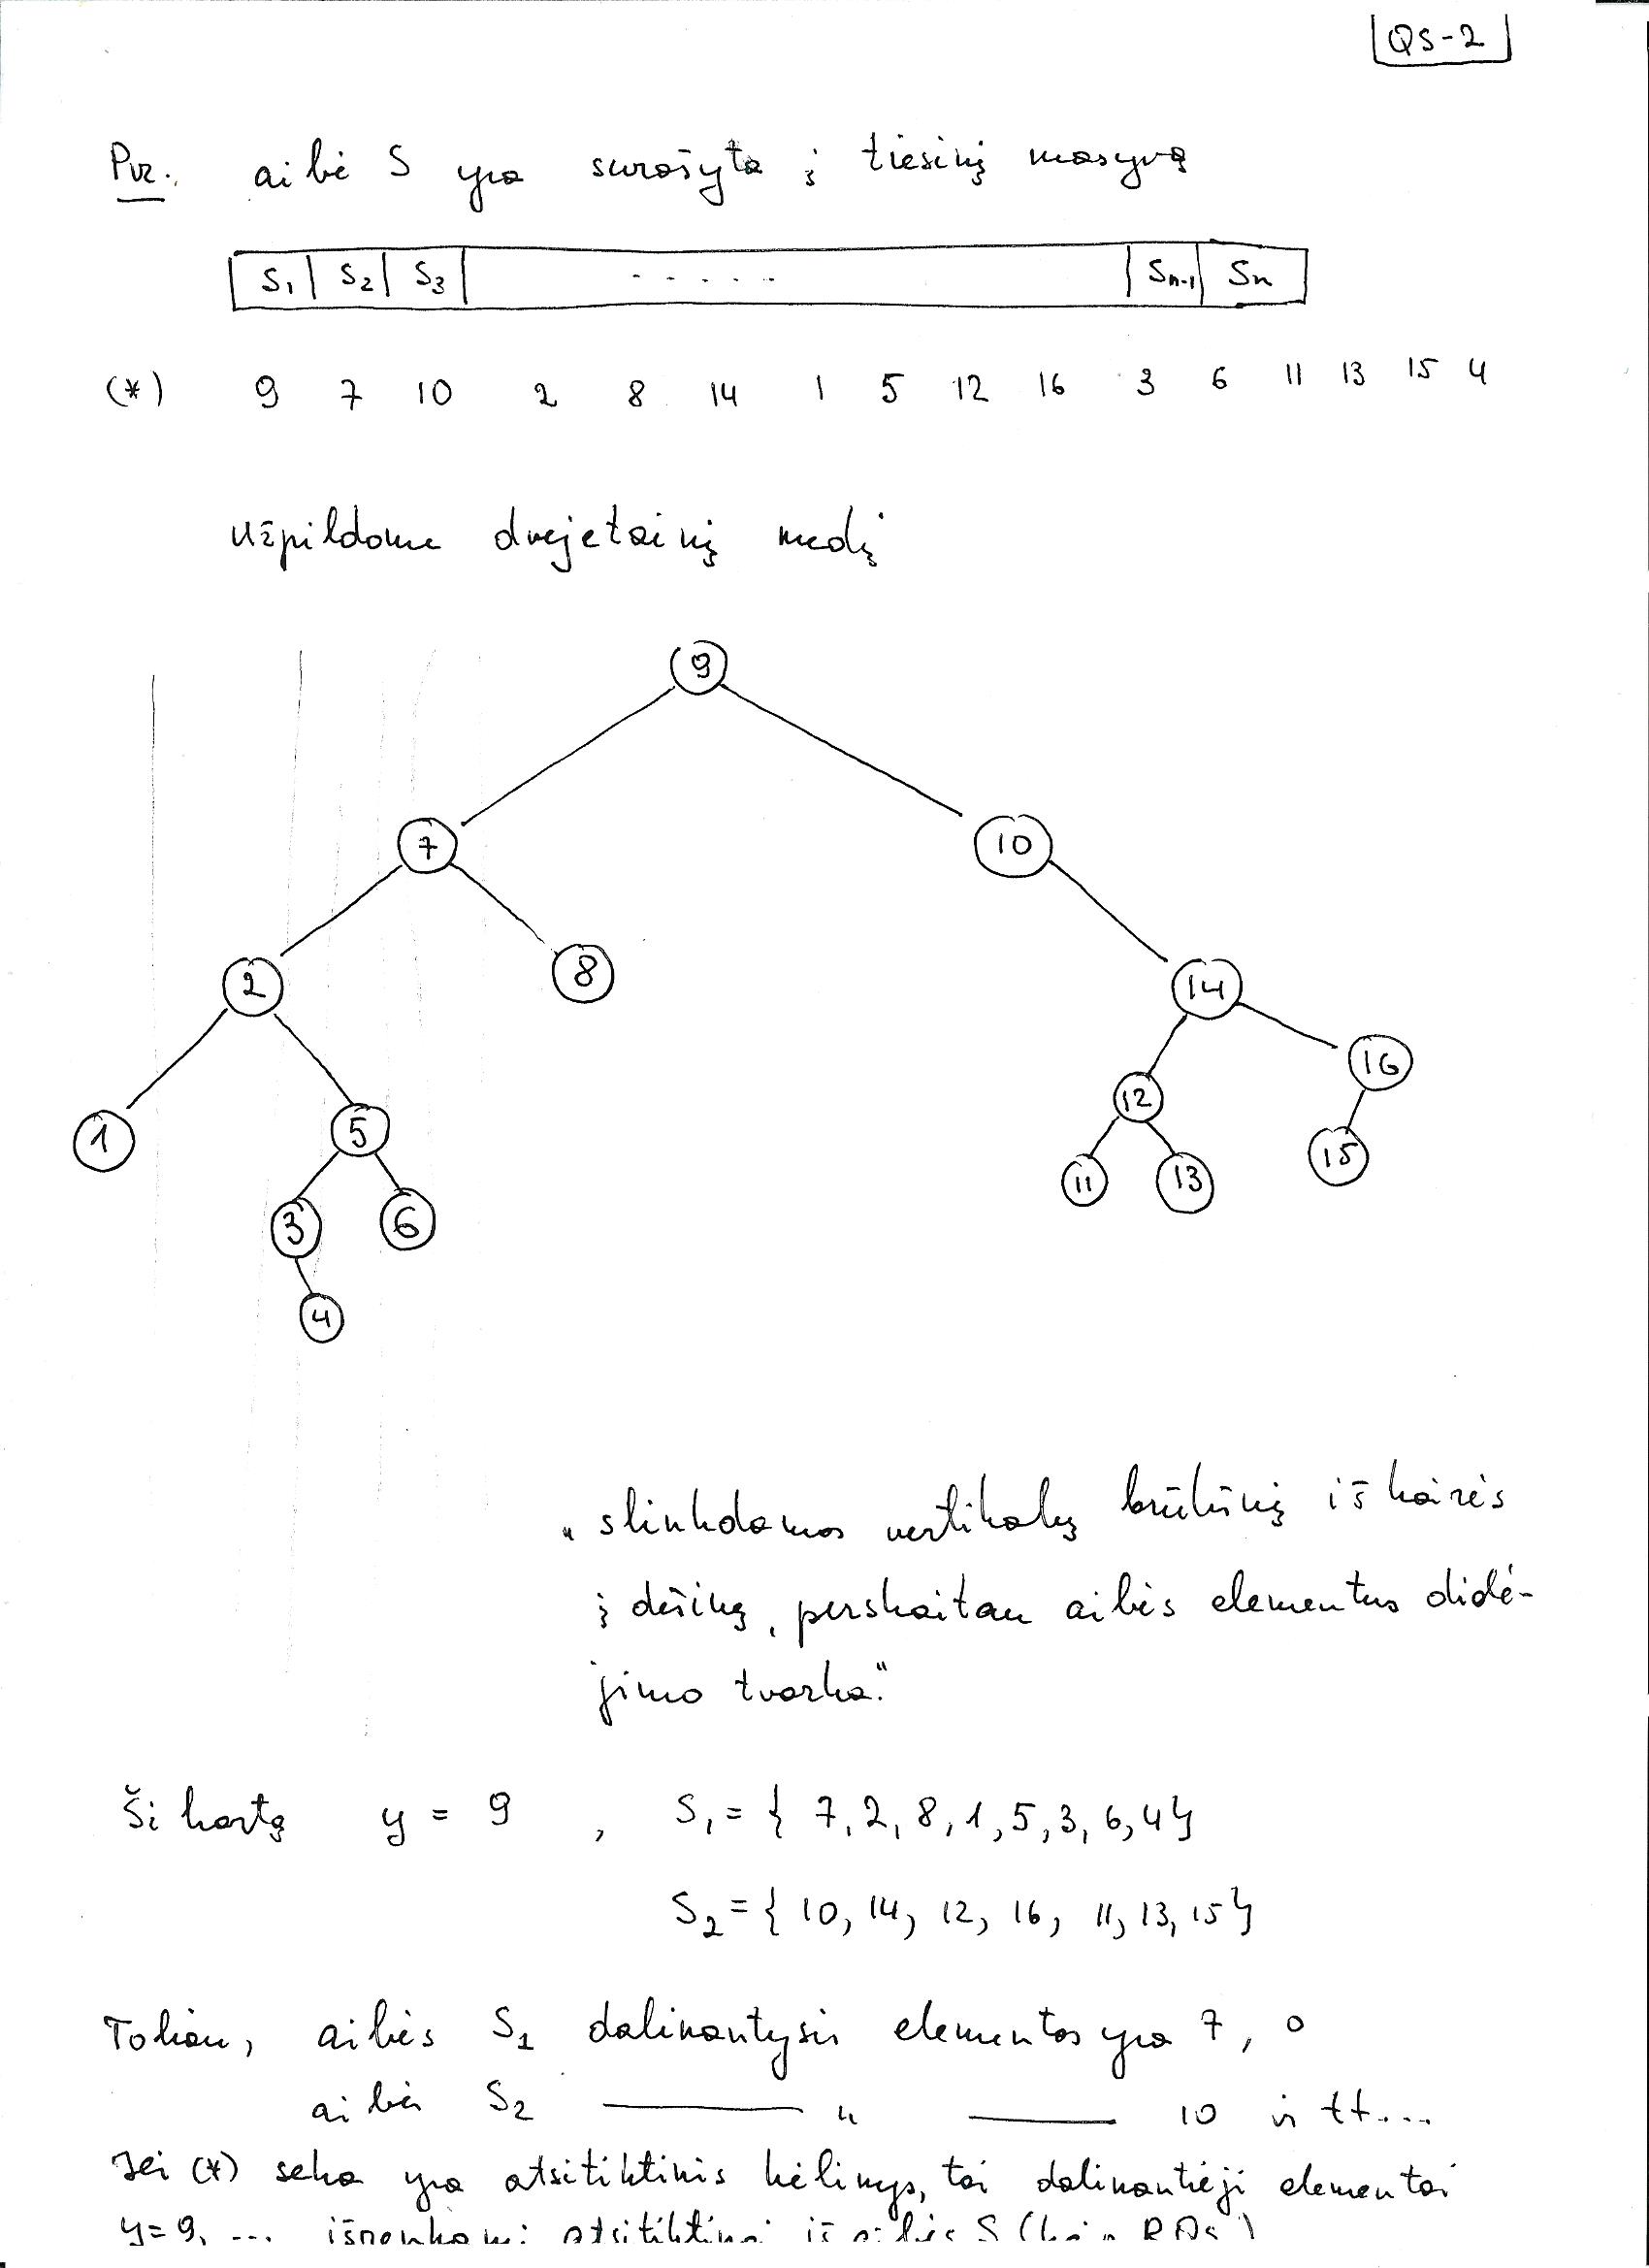 QS-2
Pvz. aibė S yra surašyta į tiesinį masyvą
S1 S2 S3 ..... Sn-1 Sn
(*) 9 7 10 2 8 14 1 5 12 16 3 6 11 13 15 4
Užpildome dvejetainį medį
9
7 10
2 8 14
16
12
1 5 15
11 13
3 6
4
„slinkdamas vertikalų brūkšnį iš kairės
į dešinę, perskaitau aibės elementus didė-
jimo tvarka."
Šį kartą y = 9 , S1 = { 7, 2, 8, 1, 5, 3, 6, 4 }
S2 = { 10, 14, 12, 16, 11, 13, 15 }
Toliau, aibės S1 dalinantysis elementas yra 7, o
aibės S2 —— " —— 10 ir tt....
Jei (*) seka yra atsitiktinis kėlinys, tai dalinantieji elementai
y=9, ... išrenkami atsitiktinai iš aibės S